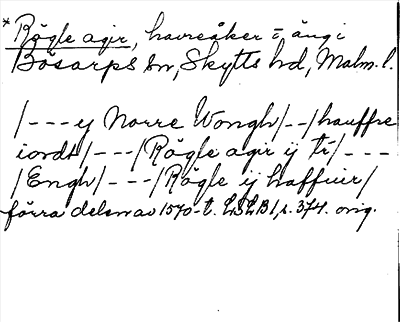 * Rögle agir, havreåker o. äng i
Bösarps sn, Skytts hd, Malm. l.
/---ij Norre Wongh/--/hauffre
iordt/---/Rögle agir ij tr/---
/Engh/---/Rögle ij haffuir/
förra delen av 1570-t. LSLB1, s. 374. orig.